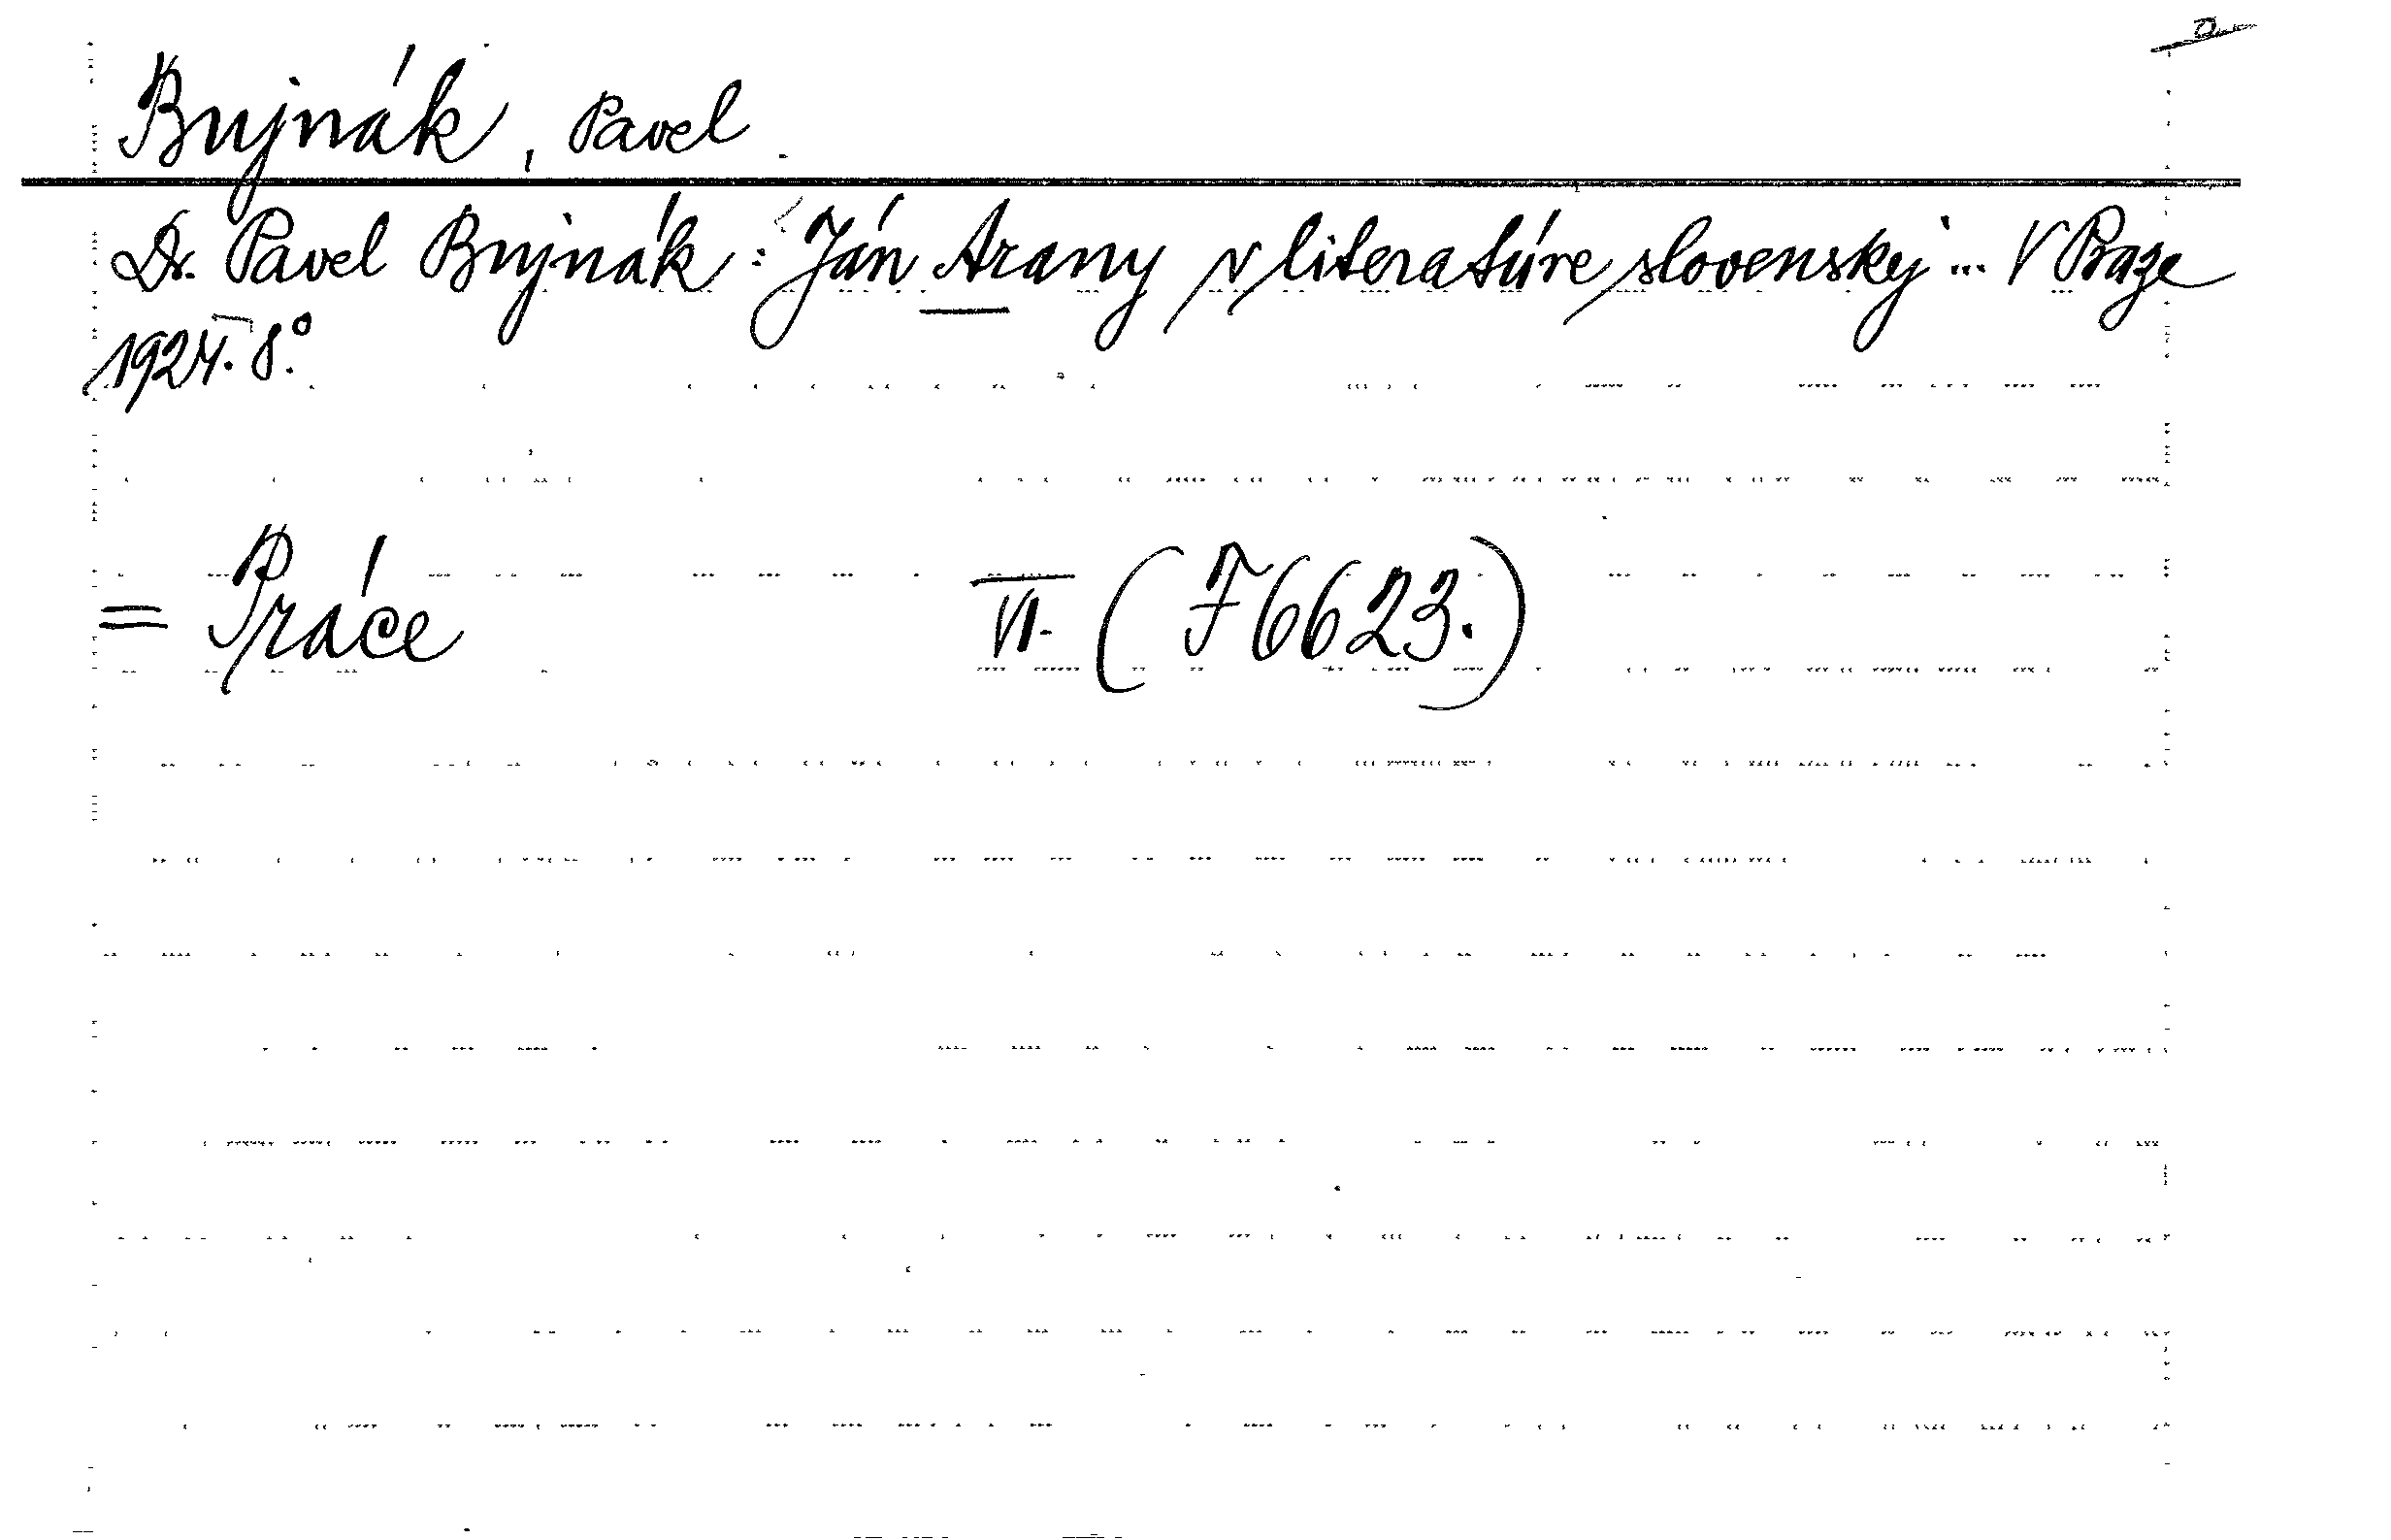 Bujnák, Pavel
Dr. Pavel Bujnák: Ján Arany v literatúre slovenskej ... V Praze
1924. 8°.
= Práce VI. (F6623.)